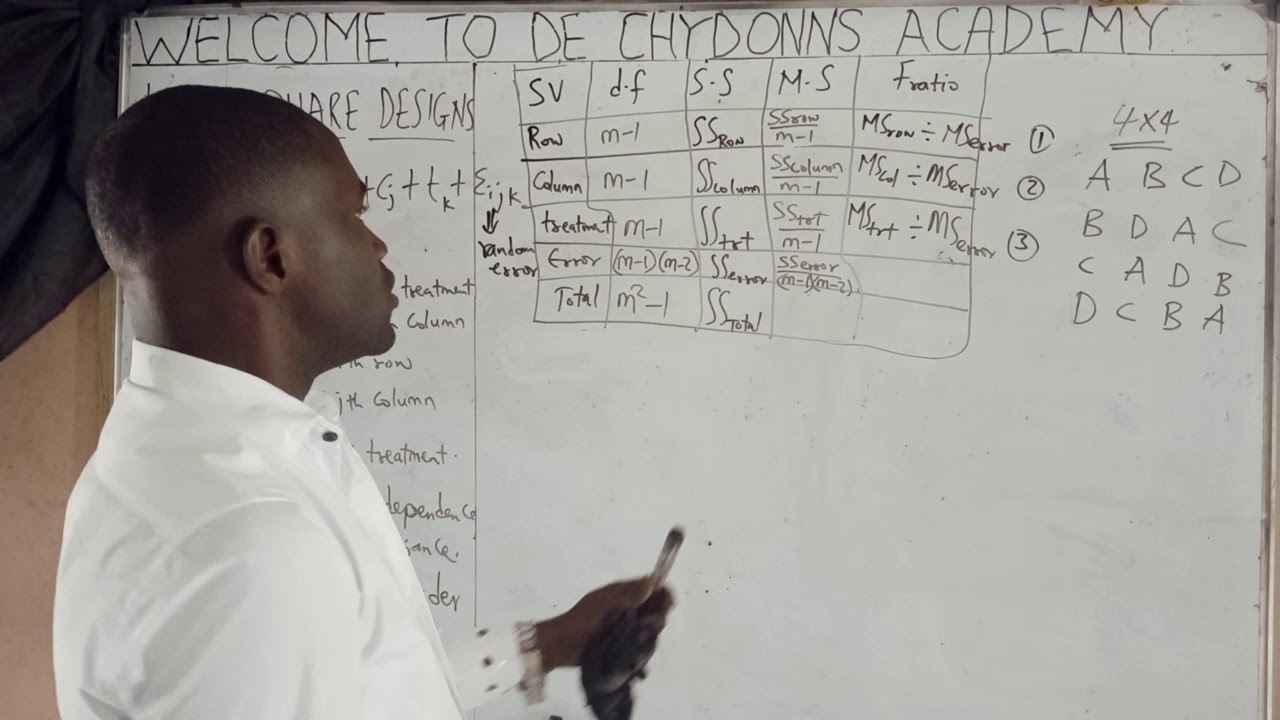 WELCOME TO DE CHYDONNS ACADEMY
DESIGNS
+ Cj + tk + Ɛijk
random
error
treatment
Column
row
jth Column
treatment.
SV d.f S.S M.S Fratio
Row m-1 SSRow SSrow/m-1 MSrow ÷ MSerror ①
Column m-1 SScolumn SScolumn/m-1 MScol ÷ MSerror ②
treatment m-1 SStrt SStrt/m-1 MStrt ÷ MSerror ③
Error (m-1)(m-2) SSerror SSerror/(m-1)(m-2)
Total m²-1 SSTotal
4x4
A B C D
B D A C
C A D B
D C B A